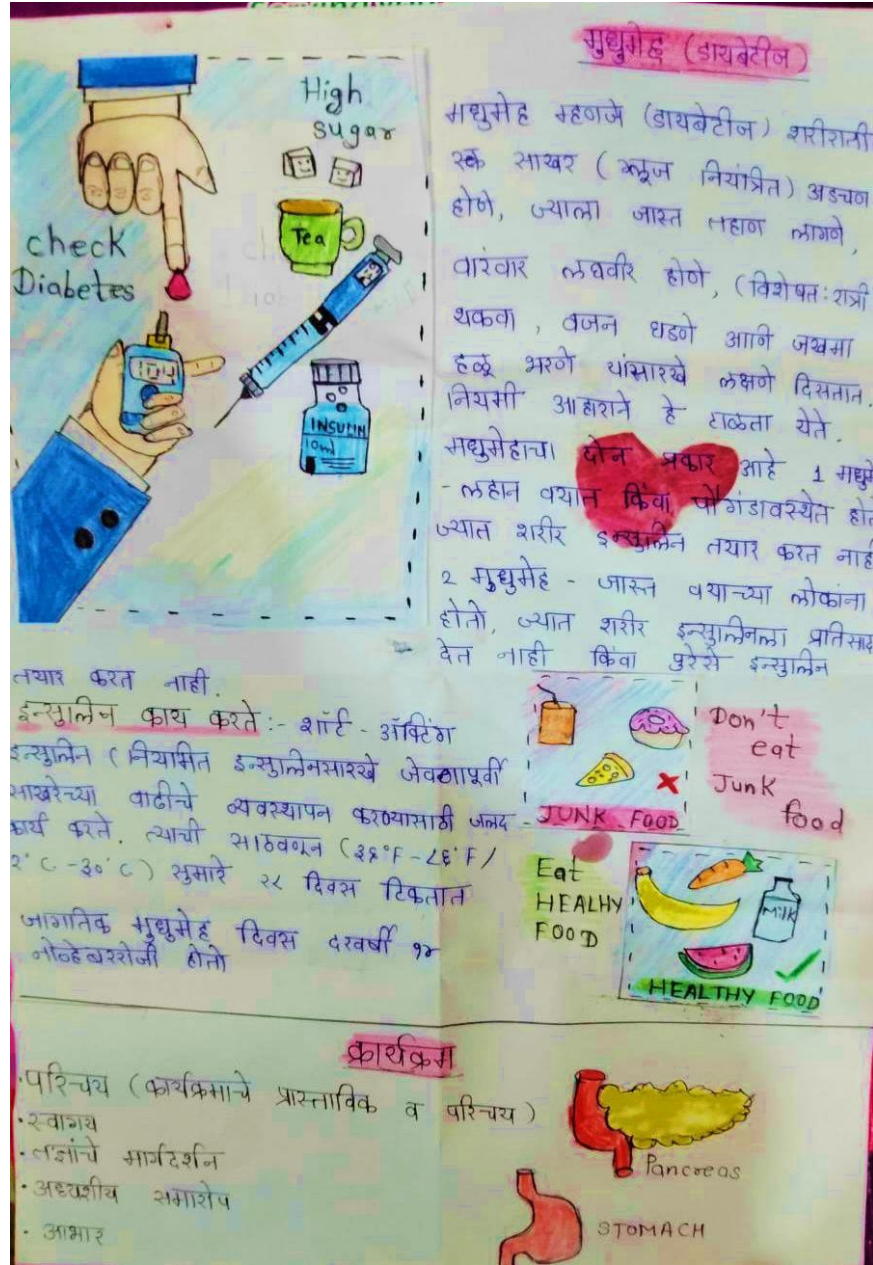 High
sugar
Tea
check
Diabetes
104
INSULIN
10ml
मुधुमेह (डायबेटीज)
मधुमेह म्हणजे (डायबेटीज) शरीराती
साखर ( नियंत्रित) अडचण
होणे, ज्याला जास्त तहान लागणे,
वारंवार लघवीर होणे, (विशेषत:रात्री
थकवा, वजन घडणे आणि जखमा
हळू भरणे यांसारखे लक्षणे दिसतात.
नियमी आहाराने हे टाळता येते.
मधुमेहाचा दोन प्रकार आहे 1 मधुमे
- लहान वयात किंवा पौगंडावस्थेत होत
ज्यात शरीर इन्सुलिन तयार करत नाही
2 मुधुमेह - जास्त वयाच्या लोकांना
होतो, ज्यात शरीर इन्सुलिनला प्रतिसाद
देत नाही किंवा पुरेसे इन्सुलिन
तयार करत नाही.
इन्सुलिन काय करते:- शॉर्ट - ॲक्टिंग
इन्सुलिन (नियमित इन्सुलिनसारखे जेवणापूर्वी
साखरेच्या वाढीचे व्यवस्थापन करण्यासाठी जलद
कार्य करते. त्याची साठवणून (३६°F-८६°F/
२°C-३०°C) सुमारे २८ दिवस टिकतात
जागतिक मुधुमेह दिवस दरवर्षी १४
नोव्हेबररोजी होतो
JUNK FOOD
Don't
eat
Junk
food
Eat
HEALHY
FOOD
Milk
HEALTHY FOOD
कार्यक्रम
·परिचय (कार्यक्रमाचे प्रास्ताविक व परिचय)
·स्वागय
·तज्ञांचे मार्गदर्शन
·अध्यशीय समारोप
·आभार
Pancreas
STOMACH